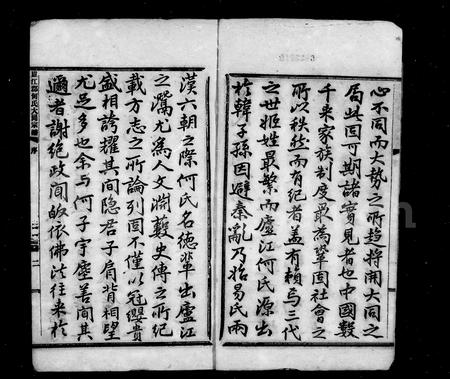 心不同而大勢之所趨將開大同之
局此固可期諸實見者也中國數
千來家族制度最為鞏固社會之
所以秩然而有紀者蓋有賴焉三代
之世姬姓最繁而廬江何氏源出
於韓子孫因避秦亂乃始易氏兩
漢六朝之際何氏名德輩出廬江
之灊尤為人文淵藪史傳之所紀
載方志之所論列固不僅以冠纓貴
盛相誇耀其間隱君子肩背相望
尤足多也余与何子宇塵善聞其
適者謝絕政聞皈依佛法往來於
廬江郡何氏大同宗譜
序
二